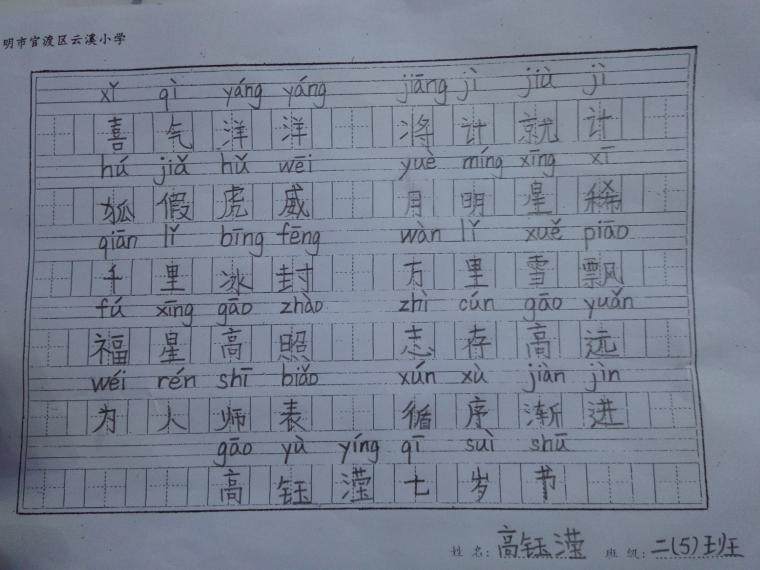 明市官渡区云溪小学
xǐ qì yáng yáng jiāng jì jiù jì
喜气洋洋 将计就计
hú jiǎ hǔ wēi yuè míng xīng xī
狐假虎威 月明星稀
qiān lǐ bīng fēng wàn lǐ xuě piāo
千里冰封 万里雪飘
fú xīng gāo zhào zhì cún gāo yuǎn
福星高照 志存高远
wéi rén shī biǎo xún xù jiàn jìn
为人师表 循序渐进
gāo yù yíng qī suì shū
高钰滢七岁书
姓名:高钰滢 班级:二(5)班